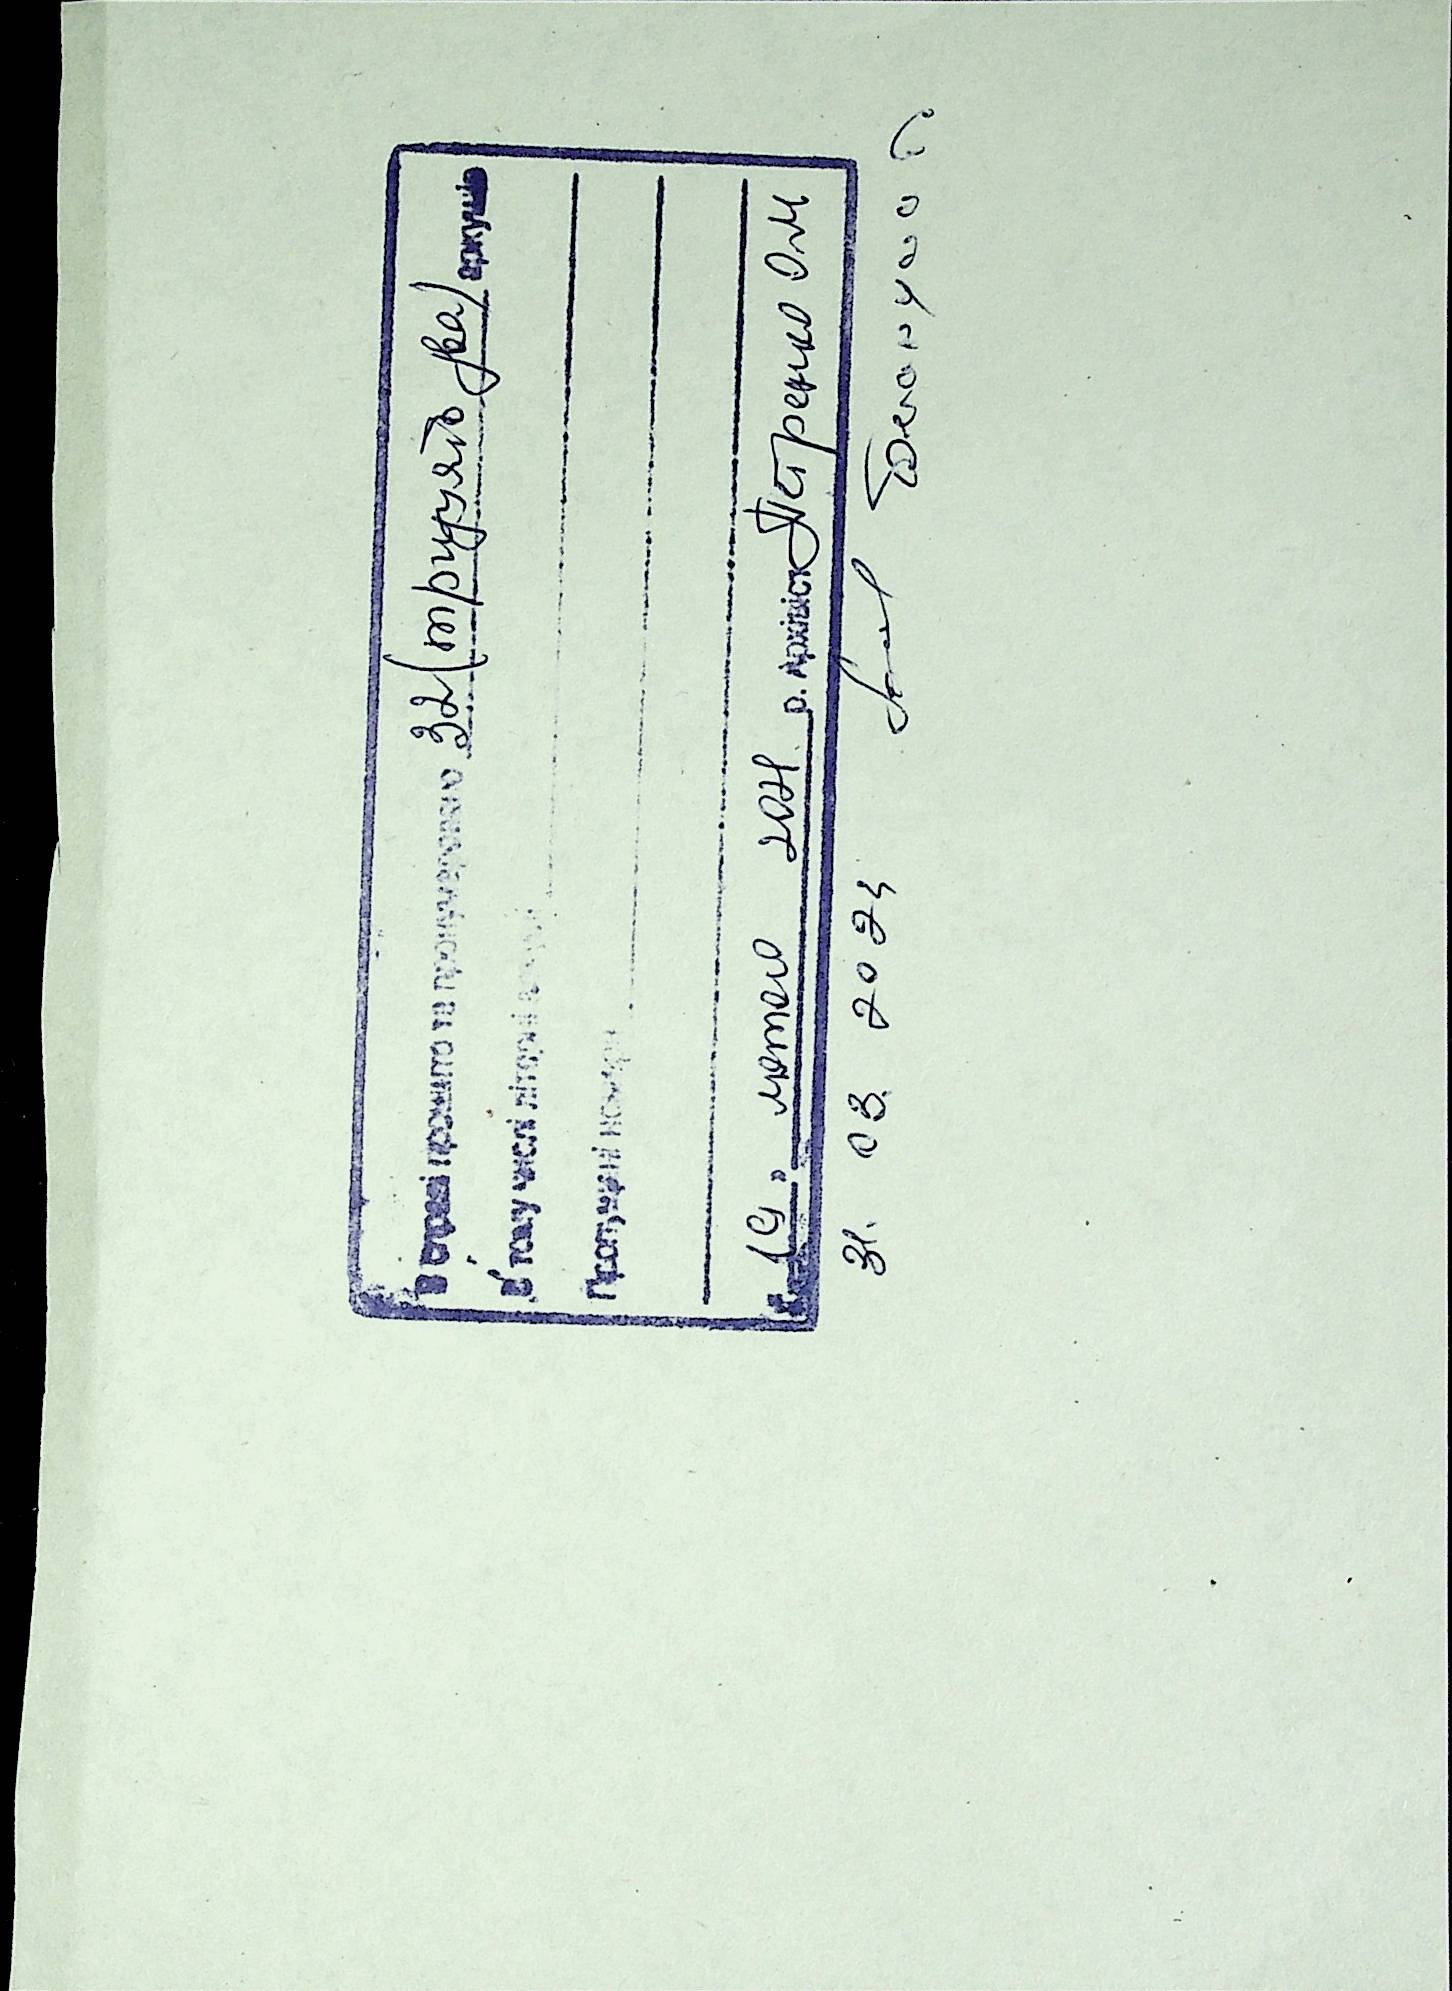 В справі прошито та пронумеровано 32 (тридцять два) аркушів
В тому числі літерні номери
Пропущені номери
« 19 » лютого 2021 р. Архівіст Петренко О.М
31. 03. 2024